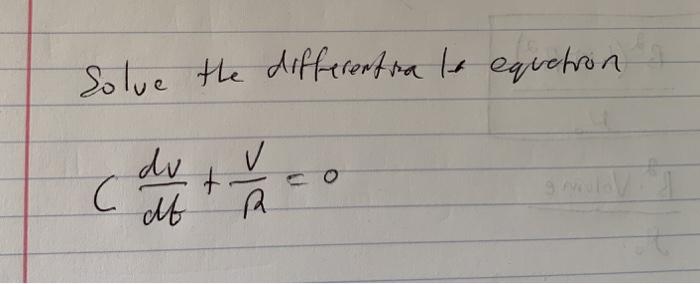 Solve the differential equation
C dv/dt + V/R = 0